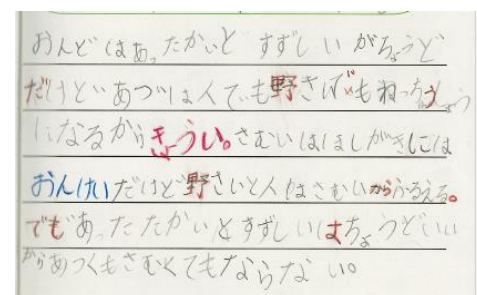 おんどはあったかいと すずしいがちょうど
だけどあつは人でも野さいでもねっちゅうしょう
になるからきょうい。さむいはほしがきしには
おんけいだけど野さいと人はさむいからふるえる。
でもあったたかいとすずしいはちょうどいい
からあつくもさむくてもならない。